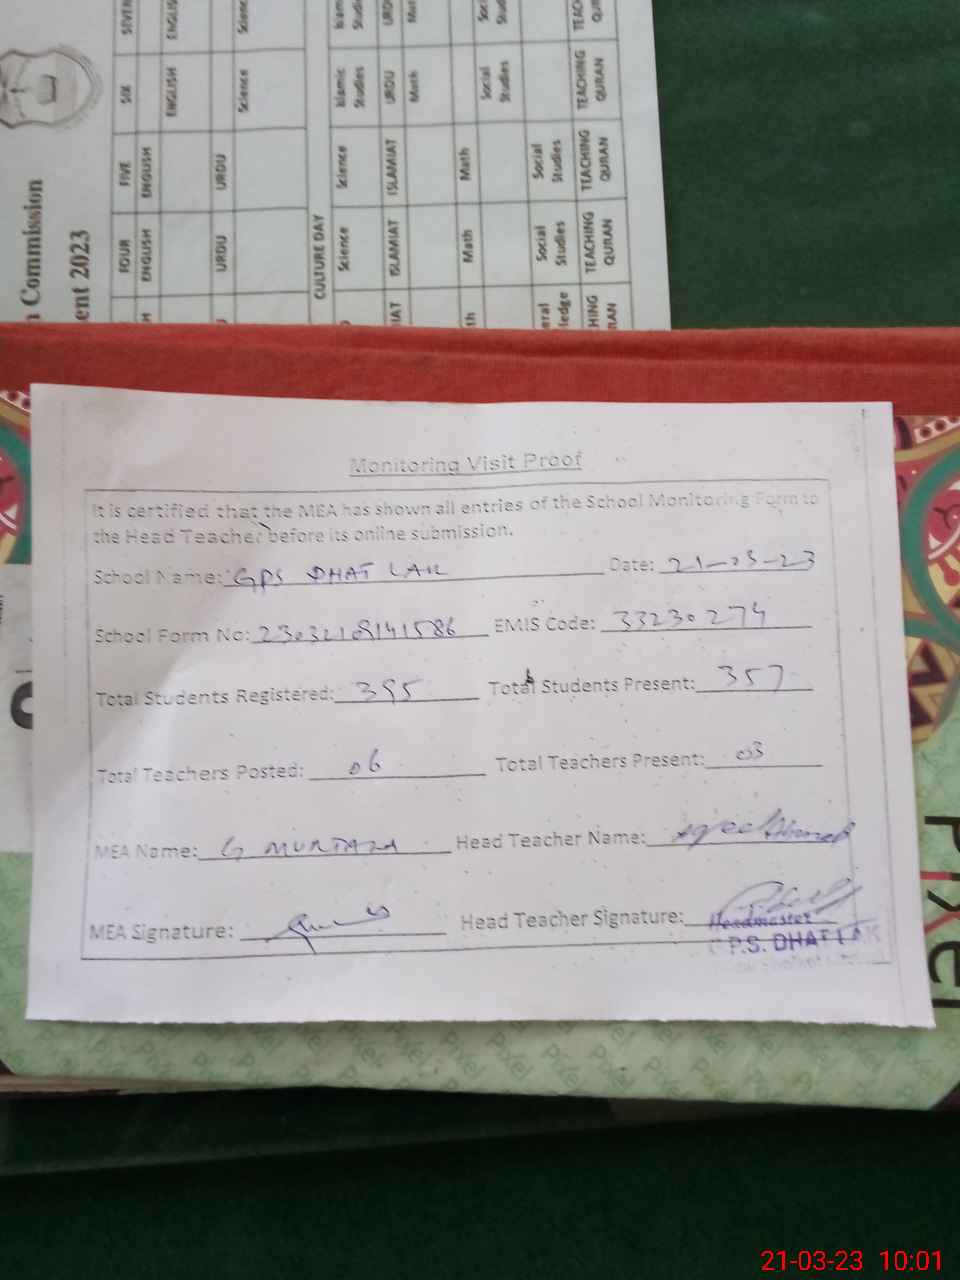 n Commission
ent 2023
FOUR FIVE SIX SEVEN
ENGLISH ENGLISH
ENGLISH ENGLISH
URDU URDU
Science Science
CULTURE DAY
Science Science Islamic Studies Islamic Studies
ISLAMIAT ISLAMIAT URDU URDU
Math Math
Math Math
Social Studies
Social Studies Social Studies
TEACHING QURAN TEACHING QURAN TEACHING QURAN
Monitoring Visit Proof
It is certified that the MEA has shown all entries of the School Monitoring Form to
the Head Teacher before its online submission.
School Name: GPS DHAT LAK Date: 21-03-23
School Form No: EMIS Code: 33230274
Total Students Registered: 395 Total Students Present: 357
Total Teachers Posted: 06 Total Teachers Present: 03
MEA Name: G MURTAZA Head Teacher Name: Ahmed
MEA Signature: Head Teacher Signature:
Headmaster
G.P.S. DHAT LAK
Pixel
21-03-23 10:01